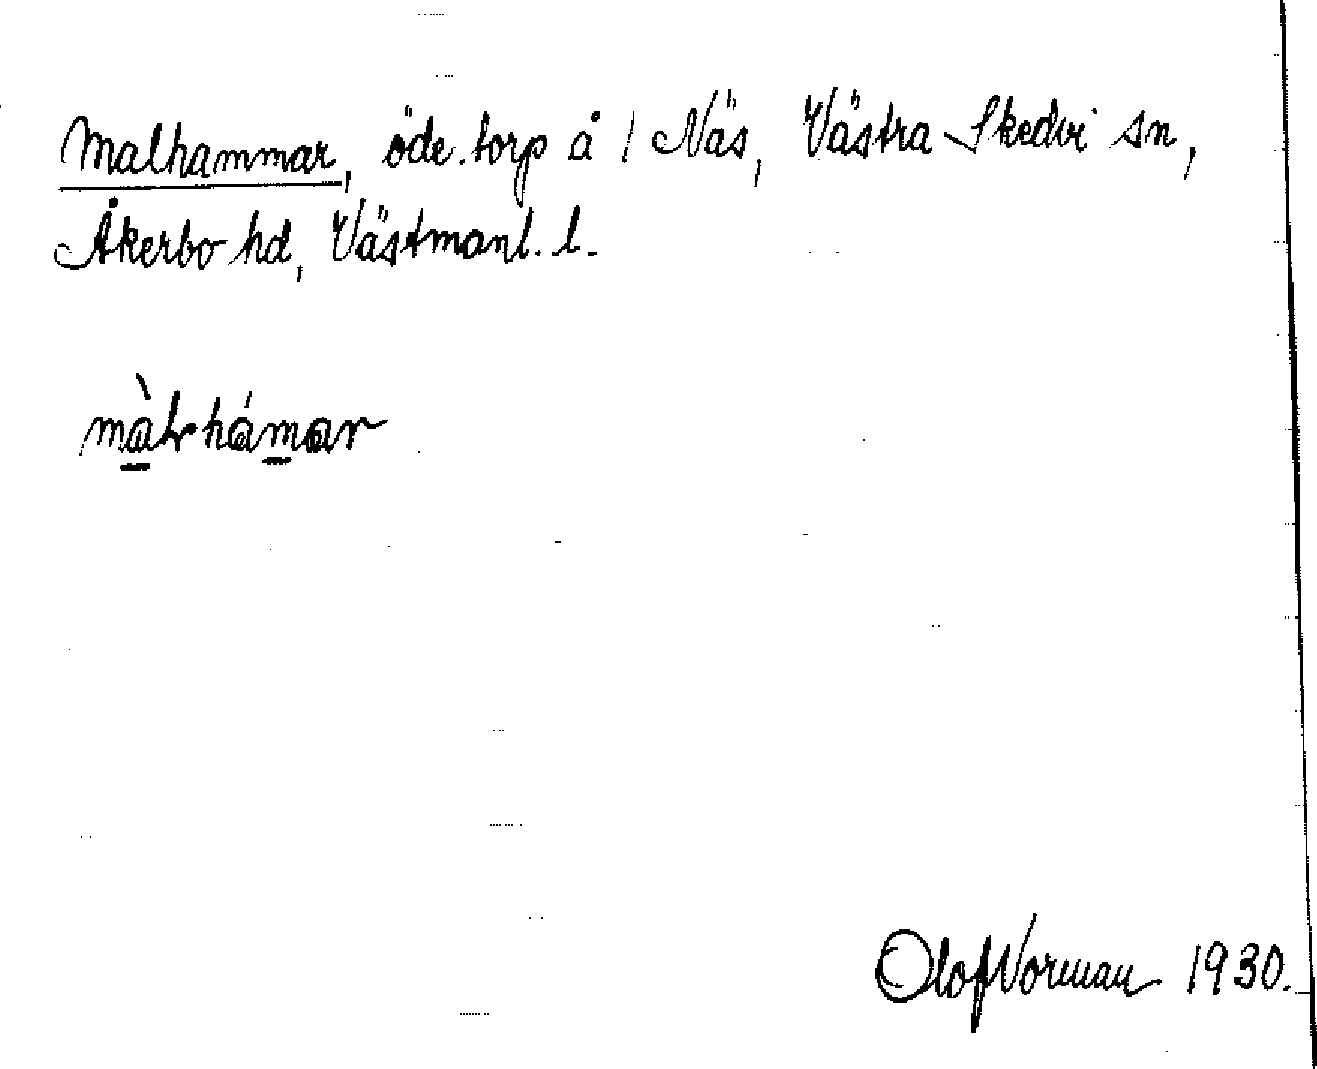 Malhammar, öde.torp å / Näs, Västra Skedvi sn,
Åkerbo hd, Västmanl. l.
màlhámar
Olof Norman 1930.